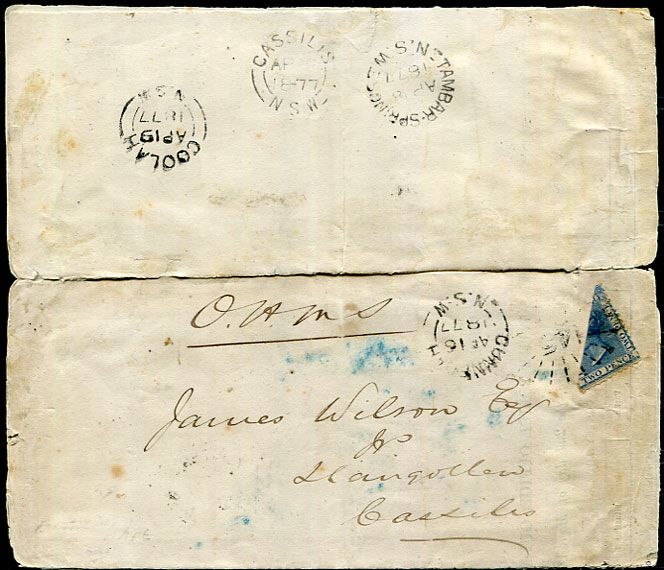 CASSILIS
AP
1877
N.S.W
TAMBAR-SPRINGS
N.S.W
AP 18
1877
COOLAH
N.S.W
AP 19
1877
O.H.M.S
N.S.W
AP 16
1877
TWO PENCE
James Wilson Esq
JP
Llangollen
Cassilis